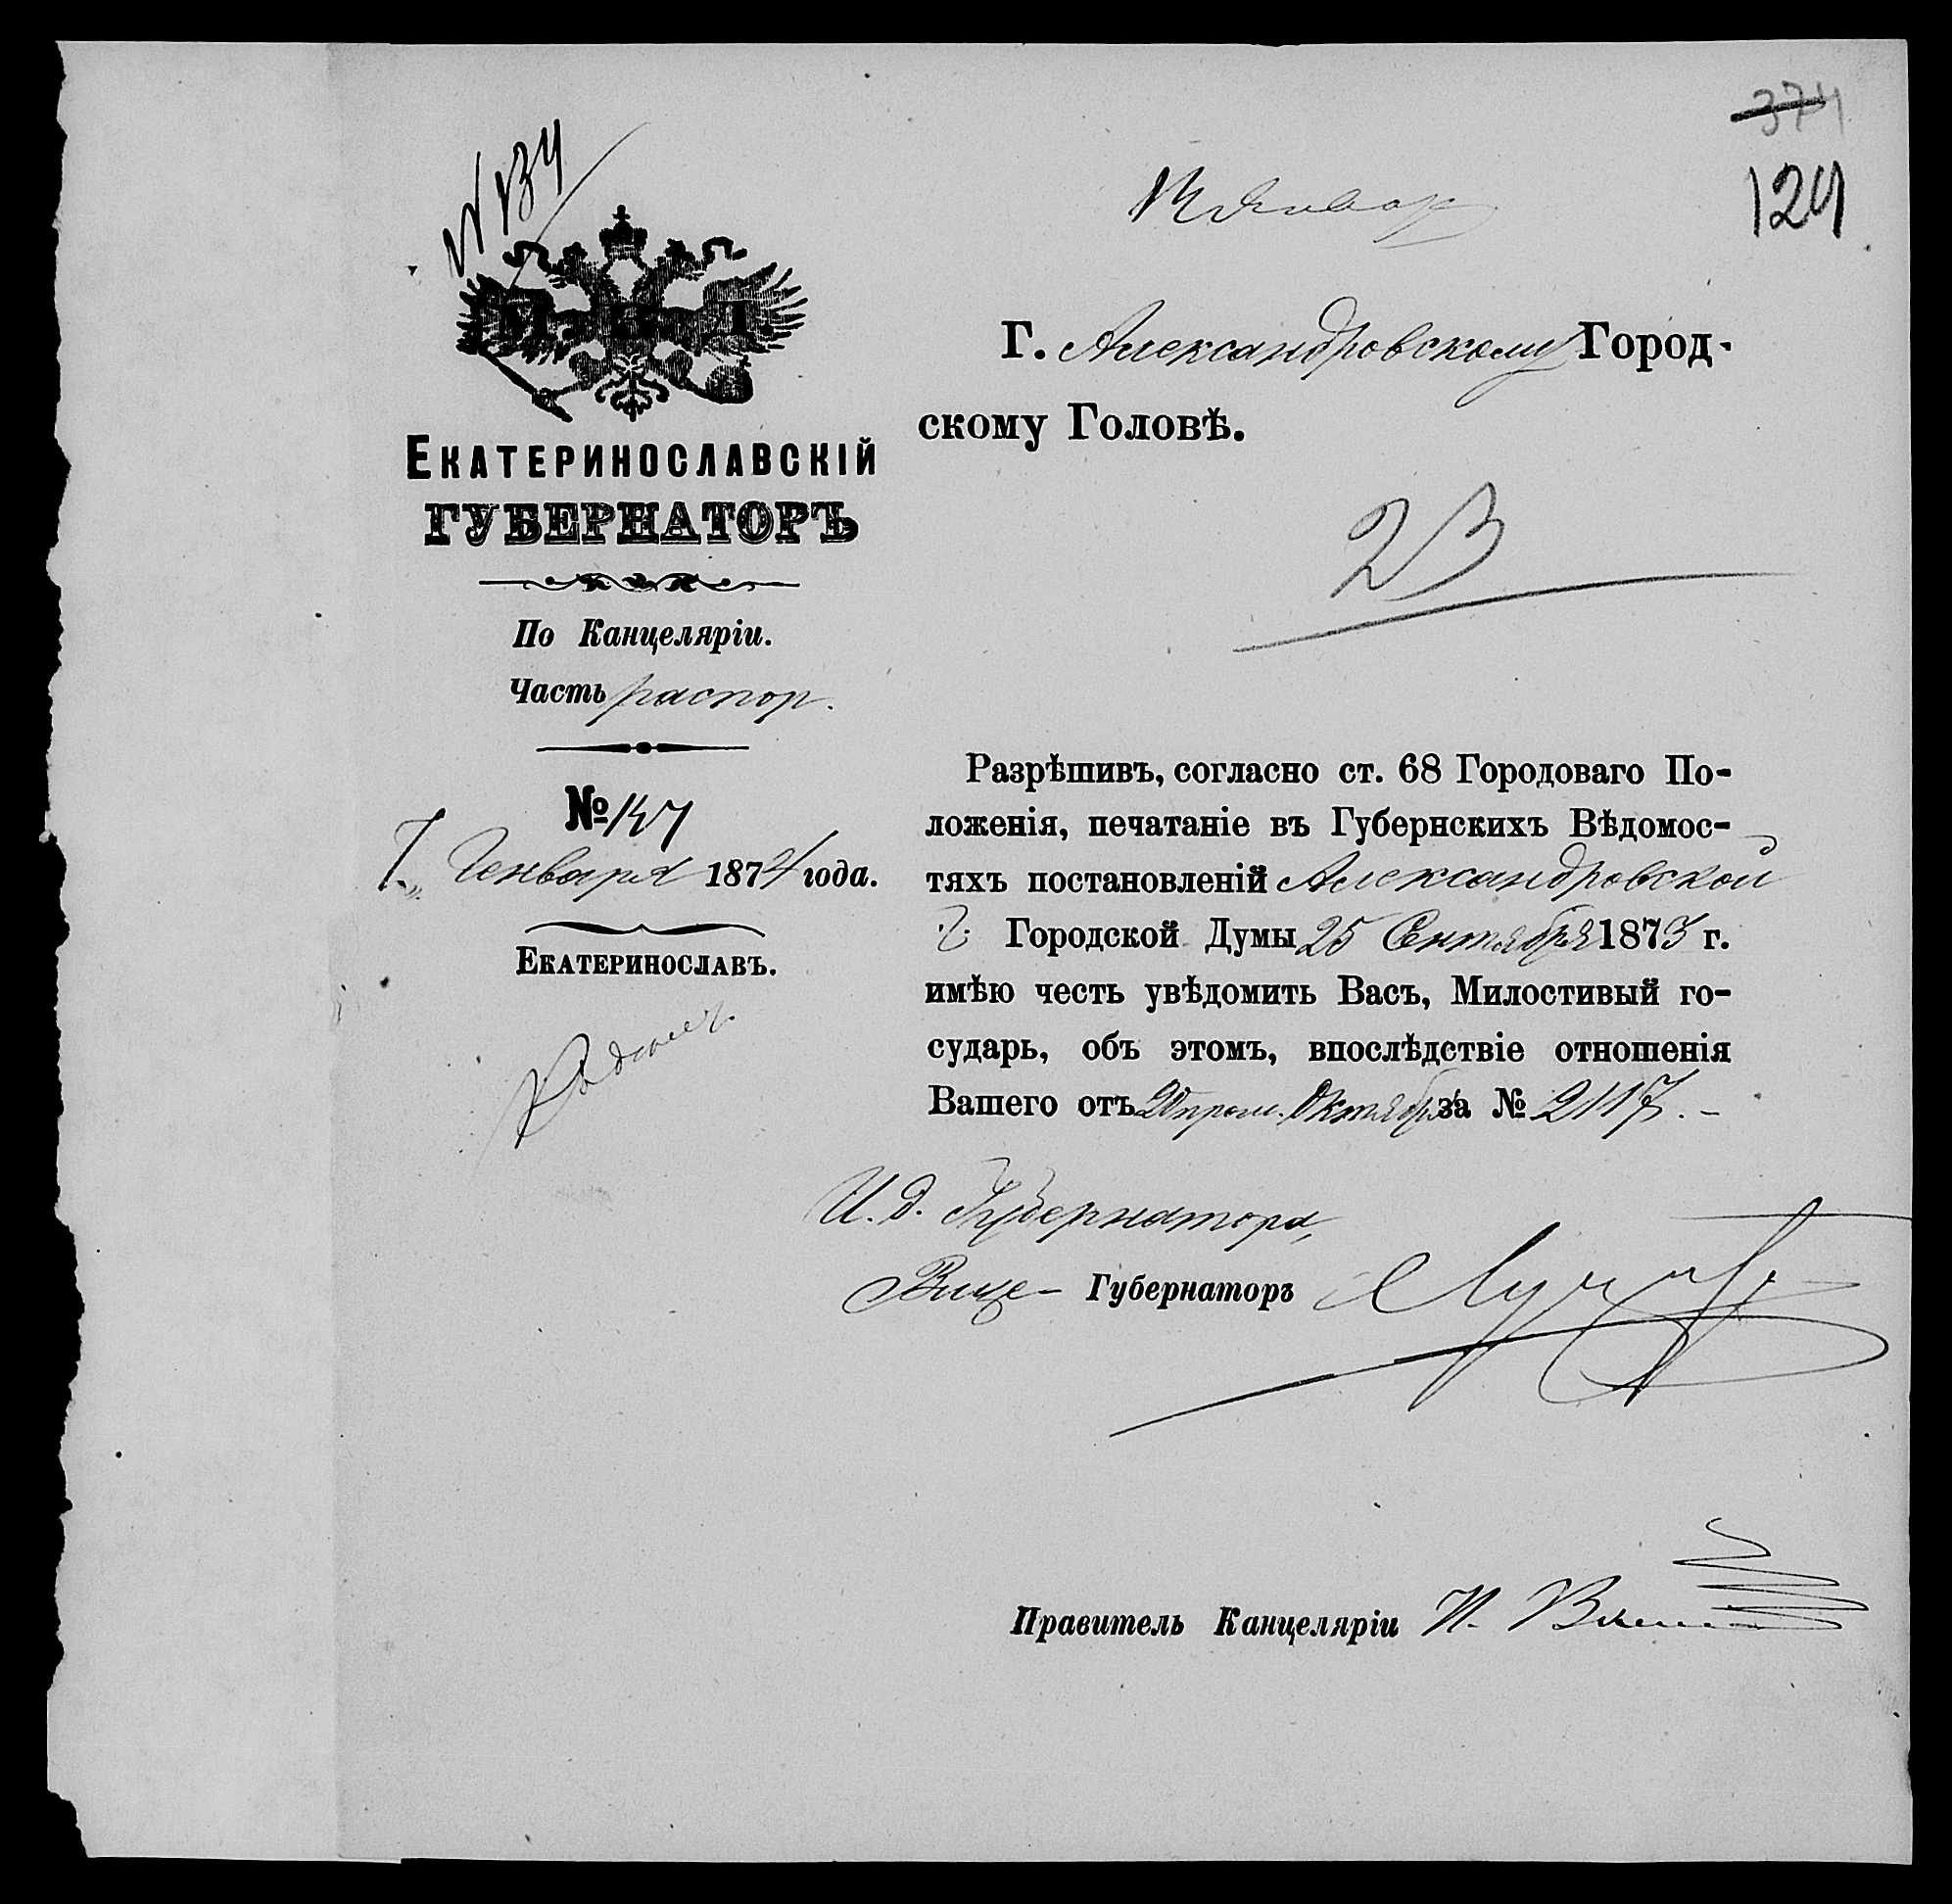 374
124
№ 134
М В Д
ЕКАТЕРИНОСЛАВСКІЙ
ГУБЕРНАТОРЪ
По Канцеляріи.
Часть распор.
№ 147
7 Генваря 1874 года.
ЕКАТЕРИНОСЛАВЪ.
Г. Александровскому Город-
скому Головѣ.
23
Разрѣшивъ, согласно ст. 68 Городоваго По-
ложенія, печатаніе въ Губернскихъ Вѣдомос-
тяхъ постановленій Александровской
Городской Думы 25 Сентября 1873 г.
имѣю честь увѣдомить Васъ, Милостивый го-
сударь, объ этомъ, впослѣдствіе отношенія
Вашего отъ 20 пром. Октября за № 2117. –
И. д. Губернатора,
Вице- Губернаторъ
Правитель Канцеляріи